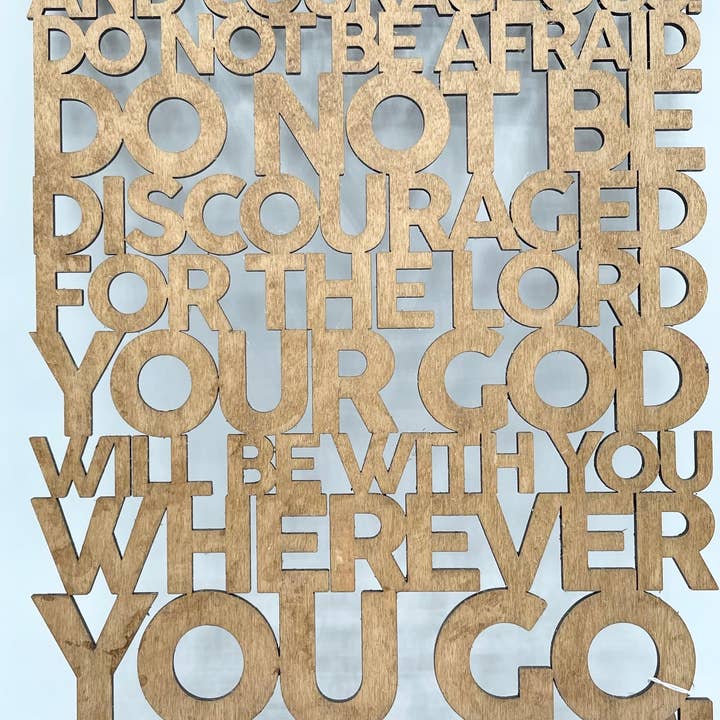 AND COURAGEOUS.
DO NOT BE AFRAID
DO NOT BE
DISCOURAGED
FOR THE LORD
YOUR GOD
WILL BE WITH YOU
WHEREVER
YOU GO.